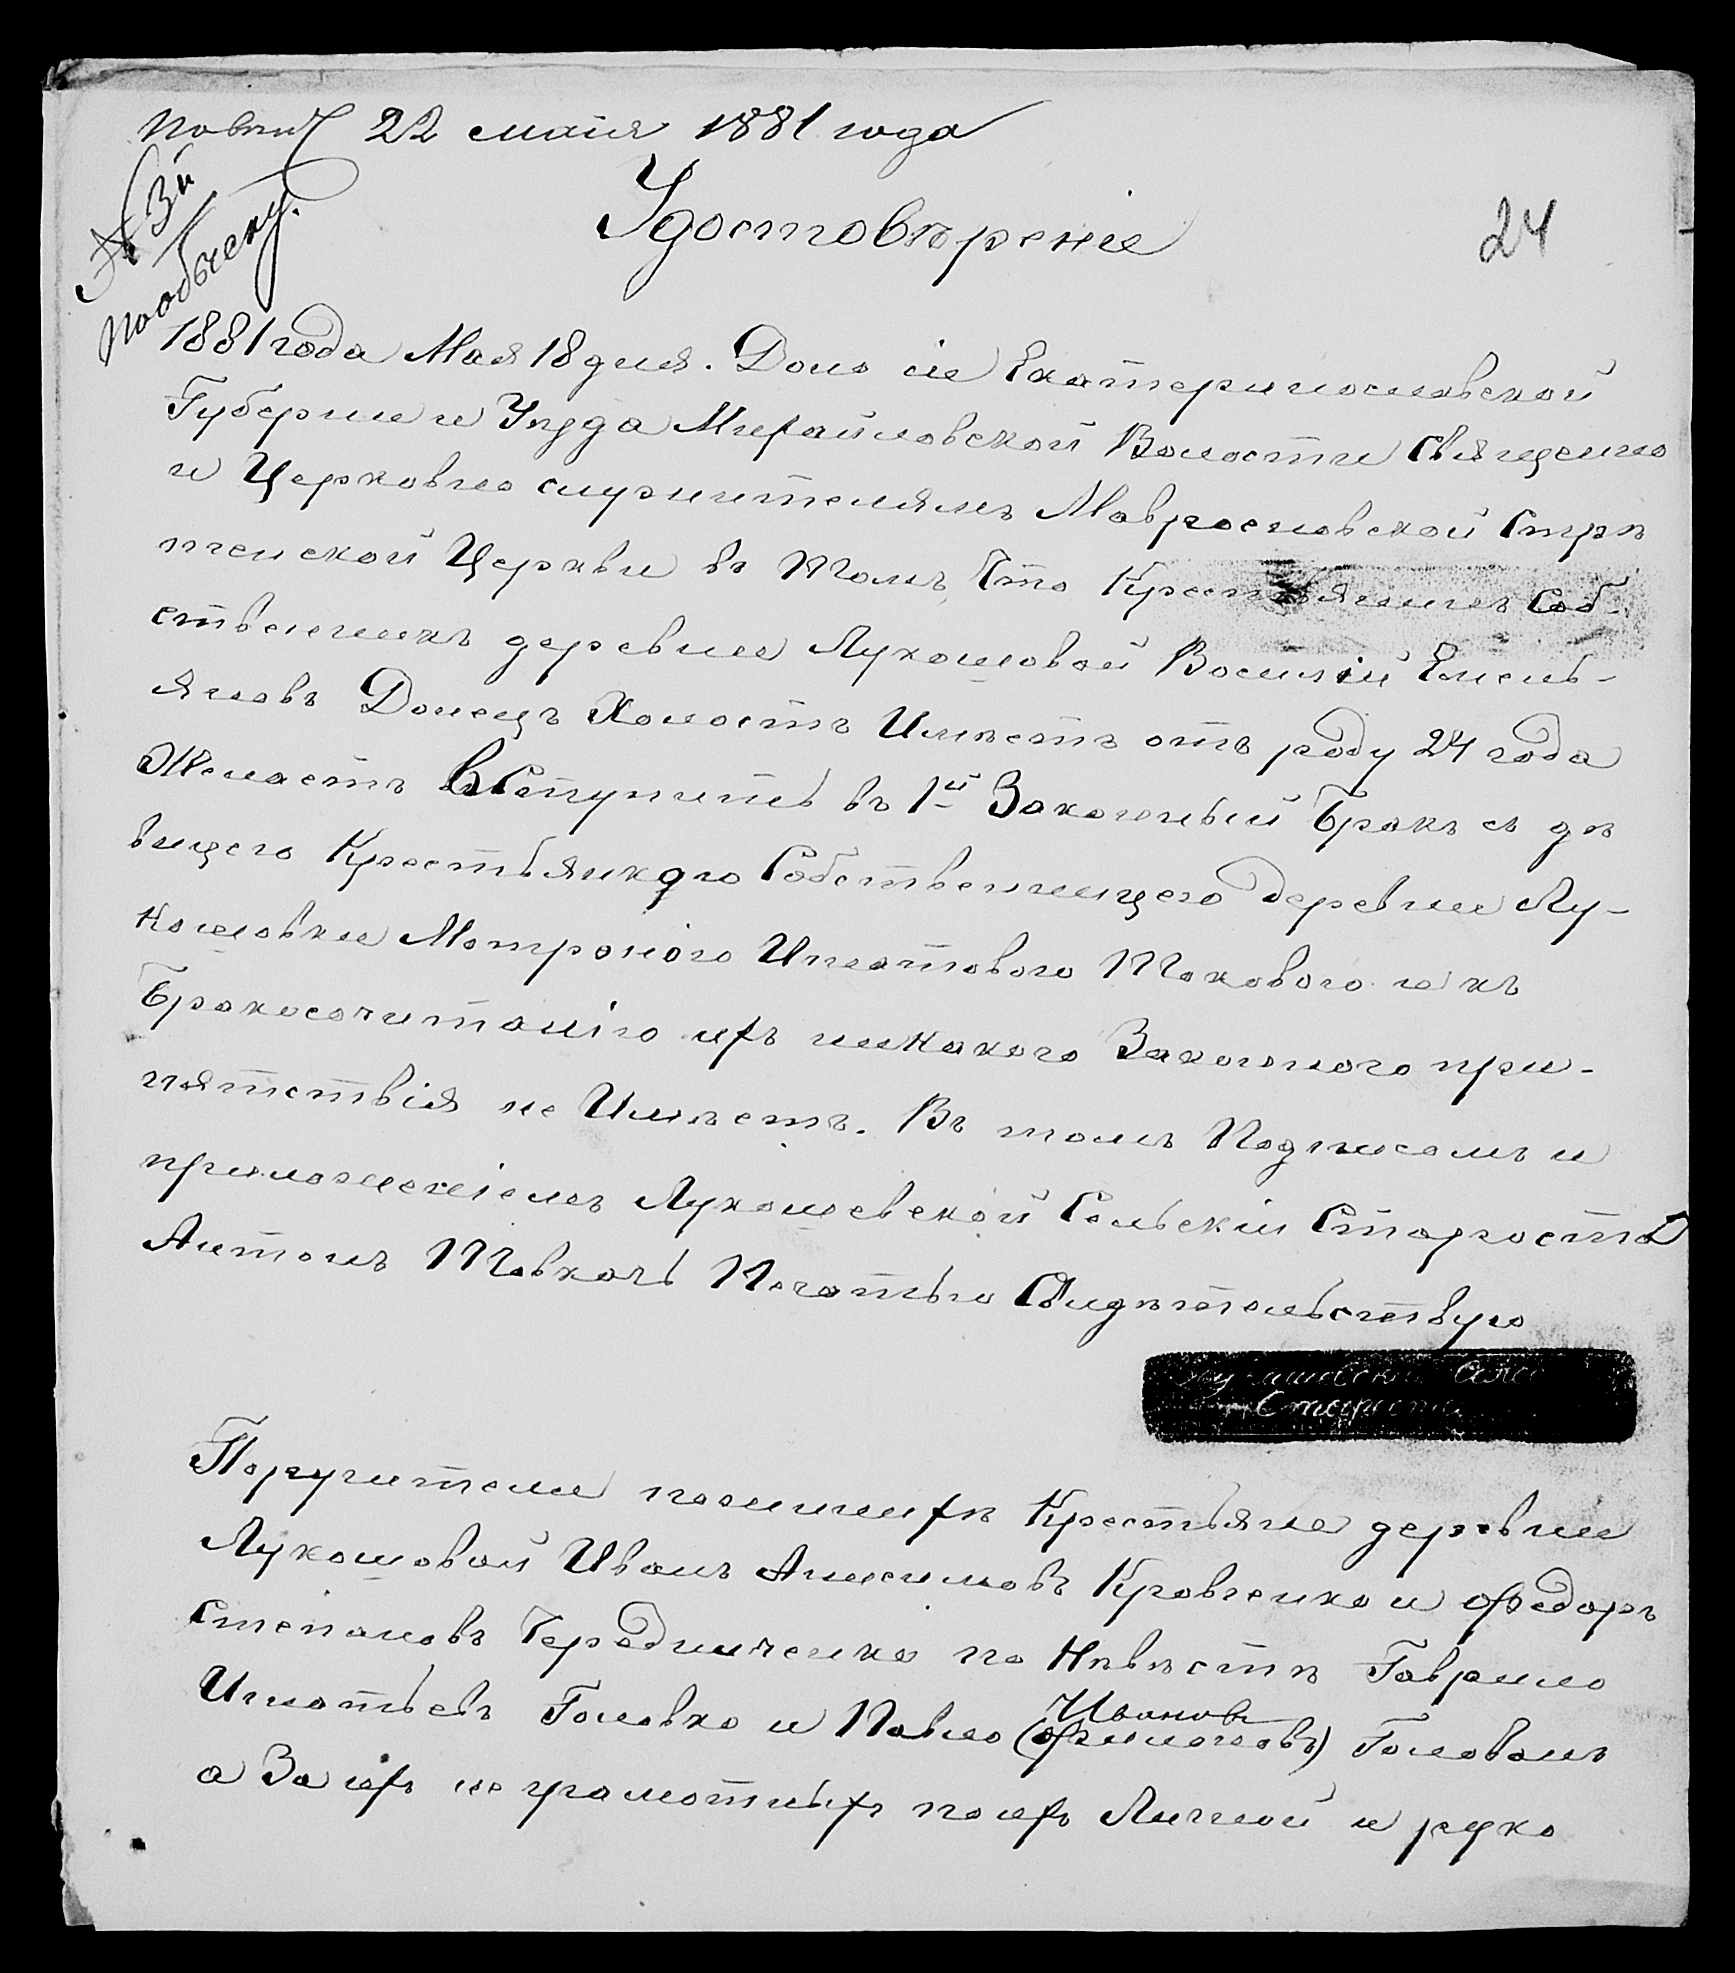 22 маия 1881 года
№ 3й
пообыску.
Удостовѣреніе
24
1881 года Мая 18 дня. Дано сіе Екатеринославской
Губерніи и Уѣзда Михайловской Волости Священно
и Церковно служителямъ Маврославской Стрѣ
тенской Церкви въ Томъ, Что Крестьянинъ Соб-
ственникъ деревни Лукошовай Василій Емель-
яновъ Донецъ Холостъ Имѣетъ отъ роду 24 года
Желаетъ вСтупить въ 1й Законный Бракъ съ дѣ
вицею Крестьянкою Собственницею деревни Лу-
кошовки Матроною Игнатовою Таковою и къ
Бракосочитанію ихъ никакого Законного при-
пятствія не Имѣетъ. Въ томъ Подписомъ и
приложеніемъ Лукошевской Сельскій Староста
Антонъ Товкачъ Печатью Свидѣтельствую
Староста
Поручители поженихѣ Крестьяне деревни
Лукошовай Иванъ Анисимовъ Кравченко и Федоръ
Степановъ Чередниченко по Нѣвѣстѣ Гаврило
Игнатьевъ Головко и Павло (Филиповъ) Ивановъ Головань
а За ихъ не грамотныхъ поихъ Личной и руко